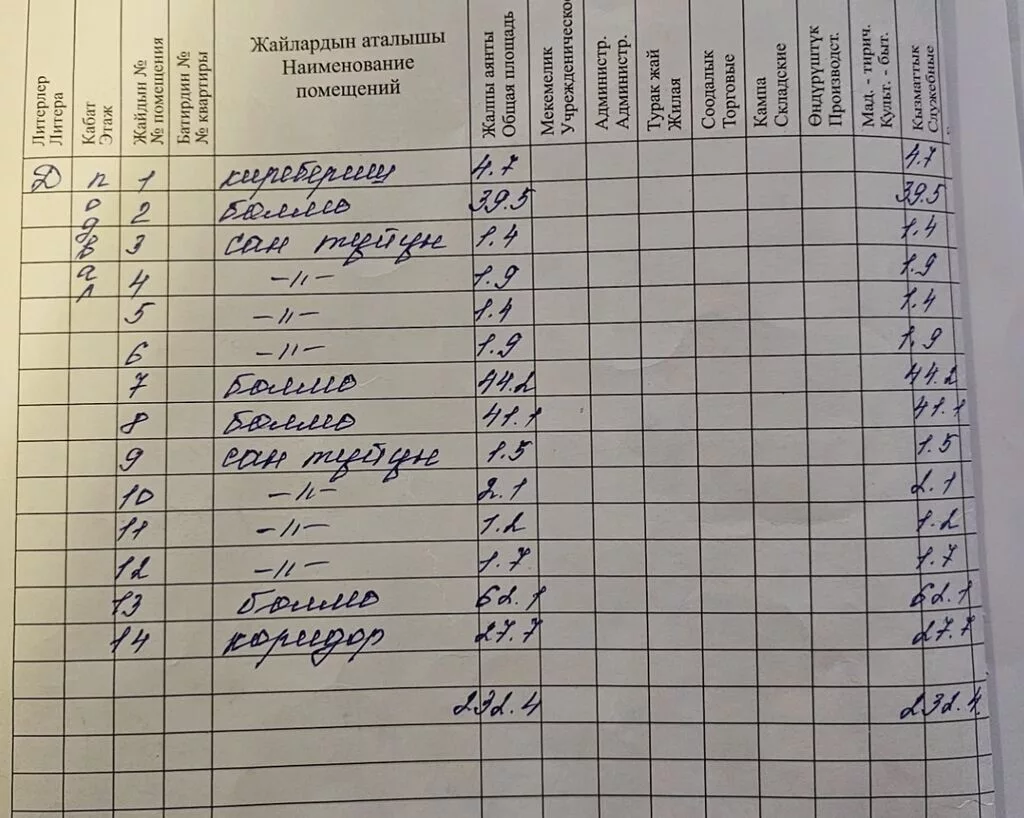 Литерлер Литера
Кабат Этаж
Жайдын № № помещения
Батирдин № № квартиры
Жайлардын аталышы
Наименование
помещений
Жалпы аянты Общая площадь
Мекемелик Учрежденическое
Администр. Администр.
Турак жай Жилая
Соодалык Торговые
Кампа Складские
Өндүрүштүк Производст.
Мад. - тирич. Культ. - быт.
Кызматтык Служебные
Д подвал 1 киребериш 4.7 4.7
2 бөлмө 39.5 39.5
3 сан түйүн 1.4 1.4
4 –〃– 1.9 1.9
5 –〃– 1.4 1.4
6 –〃– 1.9 1.9
7 бөлмө 44.2 44.2
8 бөлмө 41.1 41.1
9 сан түйүн 1.5 1.5
10 –〃– 2.1 2.1
11 –〃– 1.2 1.2
12 –〃– 1.7 1.7
13 бөлмө 62.1 62.1
14 коридор 27.7 27.7
232.4 232.4